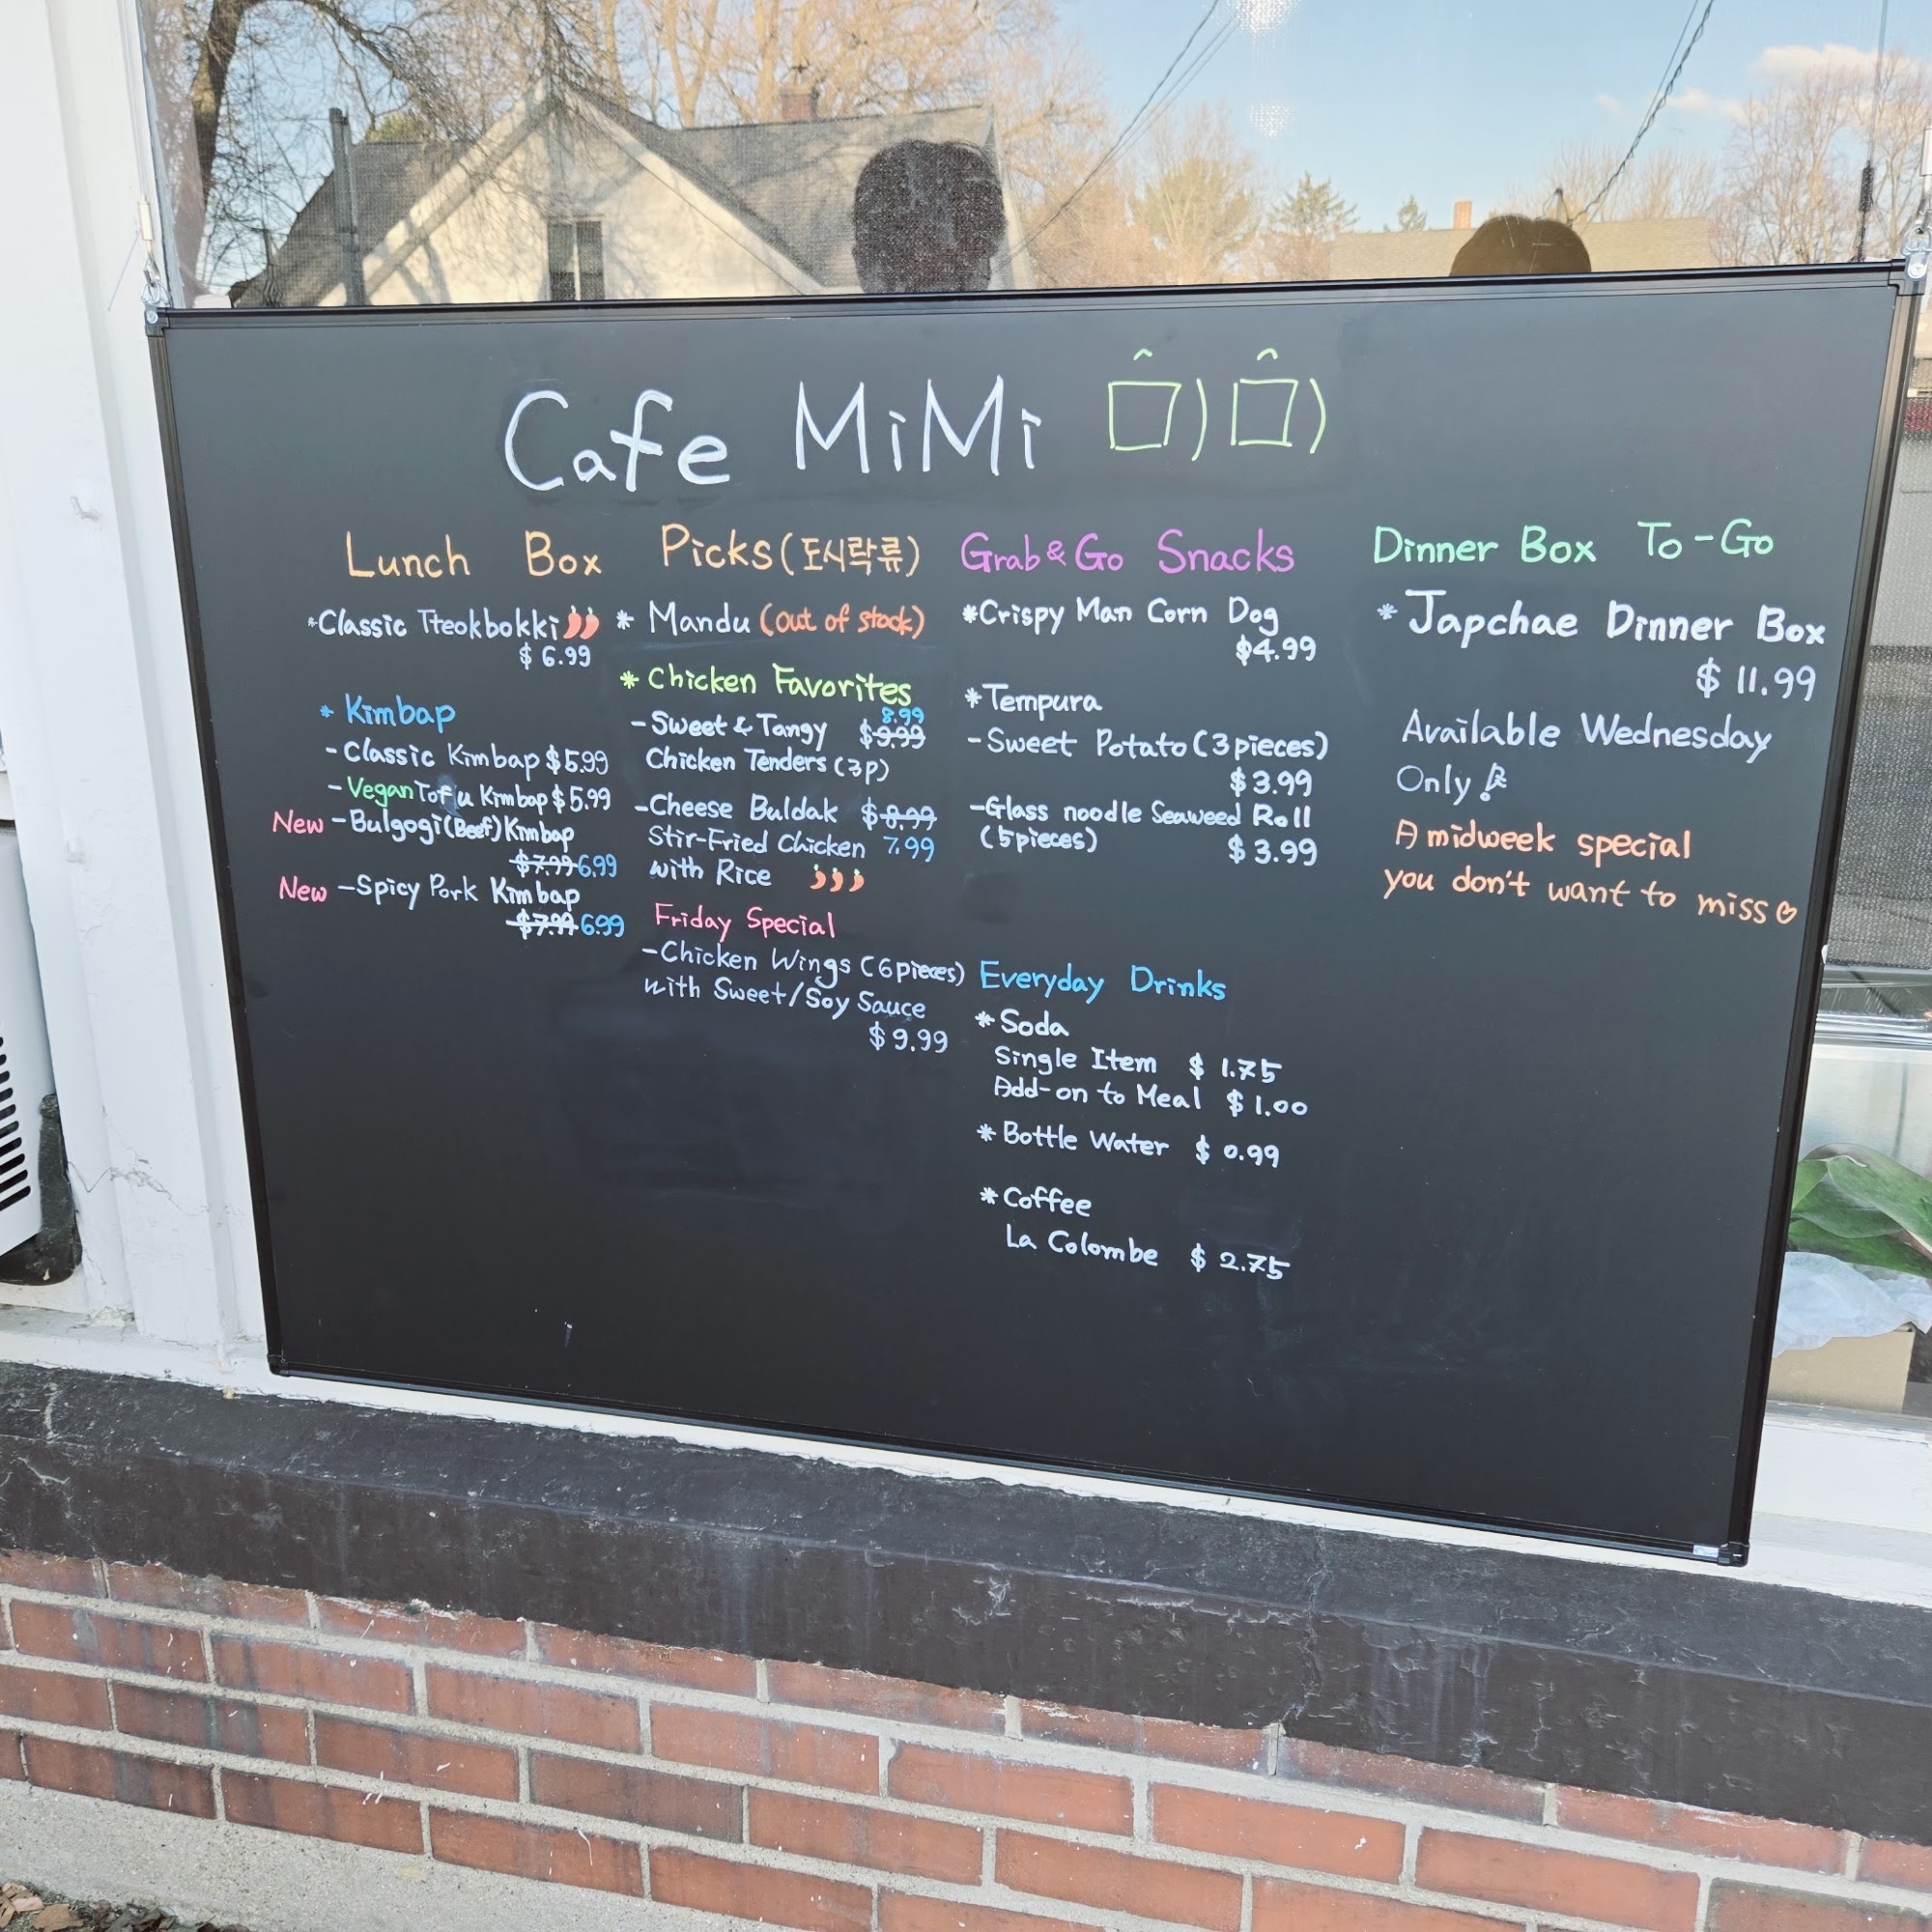 Cafe MiMi
Lunch Box Picks (도시락류)
*Classic Tteokbokki
$6.99
* Kimbap
- Classic Kimbap $5.99
- Vegan Tofu Kimbap $5.99
New - Bulgogi (Beef) Kimbap
$7.99 6.99
New - Spicy Pork Kimbap
$7.99 6.99
* Mandu (out of stock)
* Chicken Favorites
8.99
- Sweet & Tangy $9.99
Chicken Tenders (3p)
- Cheese Buldak $8.99
Stir-Fried Chicken 7.99
with Rice
Friday Special
- Chicken Wings (6pieces)
with Sweet/Soy Sauce
$9.99
Grab & Go Snacks
*Crispy Man Corn Dog
$4.99
*Tempura
- Sweet Potato (3pieces)
$3.99
- Glass noodle Seaweed Roll
(5pieces) $3.99
Everyday Drinks
* Soda
Single Item $1.75
Add-on to Meal $1.00
* Bottle Water $0.99
* Coffee
La Colombe $2.75
Dinner Box To-Go
* Japchae Dinner Box
$11.99
Available Wednesday
Only!
A midweek special
you don't want to miss♡